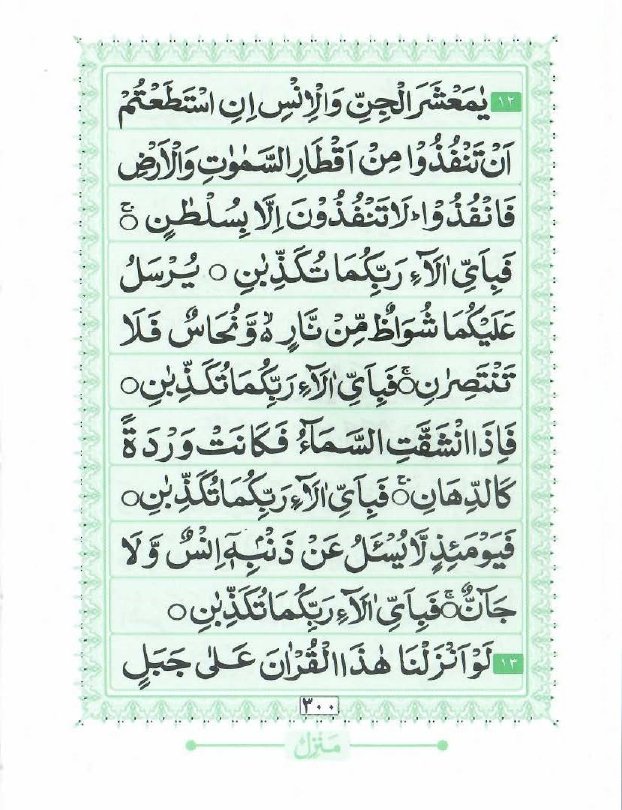 ١٢ يٰمَعْشَرَ الْجِنِّ وَالْاِنْسِ اِنِ اسْتَطَعْتُمْ
اَنْ تَنْفُذُوْا مِنْ اَقْطَارِ السَّمٰوٰتِ وَالْاَرْضِ
فَانْفُذُوْا ؕ لَا تَنْفُذُوْنَ اِلَّا بِسُلْطٰنٍ ۚ○
فَبِاَىِّ اٰلَآءِ رَبِّكُمَا تُكَذِّبٰنِ ○ يُرْسَلُ
عَلَيْكُمَا شُوَاظٌ مِّنْ نَّارٍ ۙ۬ وَّنُحَاسٌ فَلَا
تَنْتَصِرٰنِ ۚ○ فَبِاَىِّ اٰلَآءِ رَبِّكُمَا تُكَذِّبٰنِ ○
فَاِذَا انْشَقَّتِ السَّمَآءُ فَكَانَتْ وَرْدَةً
كَالدِّهَانِ ۚ○ فَبِاَىِّ اٰلَآءِ رَبِّكُمَا تُكَذِّبٰنِ ○
فَيَوْمَئِذٍ لَّا يُسْئَلُ عَنْ ذَنْۢبِهٖۤ اِنْسٌ وَّلَا
جَآنٌّ ۚ○ فَبِاَىِّ اٰلَآءِ رَبِّكُمَا تُكَذِّبٰنِ ○
١٣ لَوْ اَنْزَلْنَا هٰذَا الْقُرْاٰنَ عَلٰى جَبَلٍ
٣٠٠
مَنْزِل